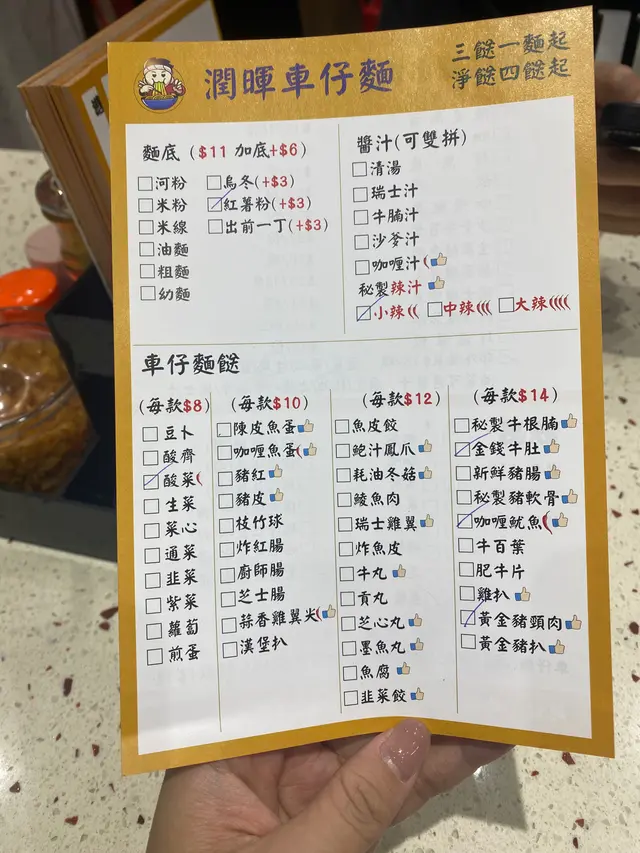 潤暉車仔麵
三餸一麵起
淨餸四餸起
麵底 ($11 加底+$6)
河粉
米粉
米線
油麵
粗麵
幼麵
烏冬(+$3)
紅薯粉(+$3)
出前一丁(+$3)
醬汁(可雙拼)
清湯
瑞士汁
牛腩汁
沙爹汁
咖喱汁
秘製辣汁
小辣 中辣 大辣
車仔麵餸
(每款$8)
豆卜
酸齋
酸菜
生菜
菜心
通菜
韭菜
紫菜
蘿蔔
煎蛋
(每款$10)
陳皮魚蛋
咖喱魚蛋
豬紅
豬皮
枝竹球
炸紅腸
廚師腸
芝士腸
蒜香雞翼尖
漢堡扒
(每款$12)
魚皮餃
鮑汁鳳爪
耗油冬菇
鯪魚肉
瑞士雞翼
炸魚皮
牛丸
貢丸
芝心丸
墨魚丸
魚腐
韭菜餃
(每款$14)
秘製牛根腩
金錢牛肚
新鮮豬腸
秘製豬軟骨
咖喱魷魚
牛百葉
肥牛片
雞扒
黃金豬頸肉
黃金豬扒